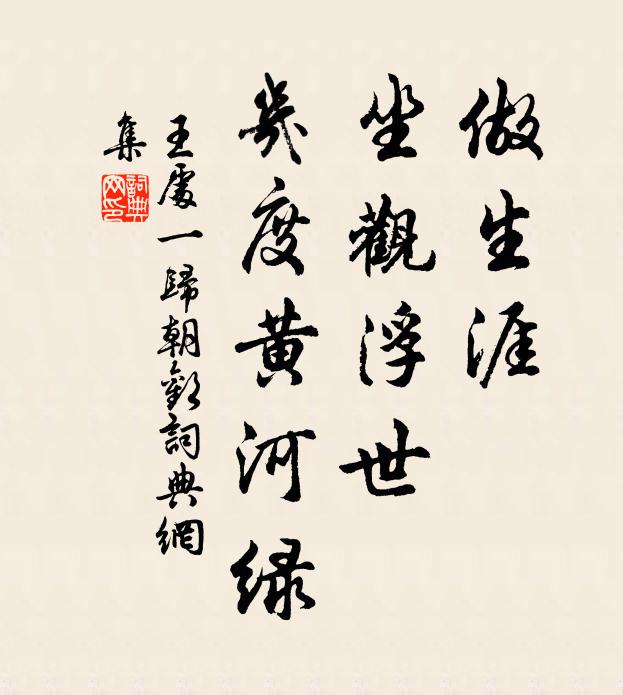 做生涯
坐觀浮世
幾度黃河綠
王處一歸朝歡詞典網
集
詞典
网印